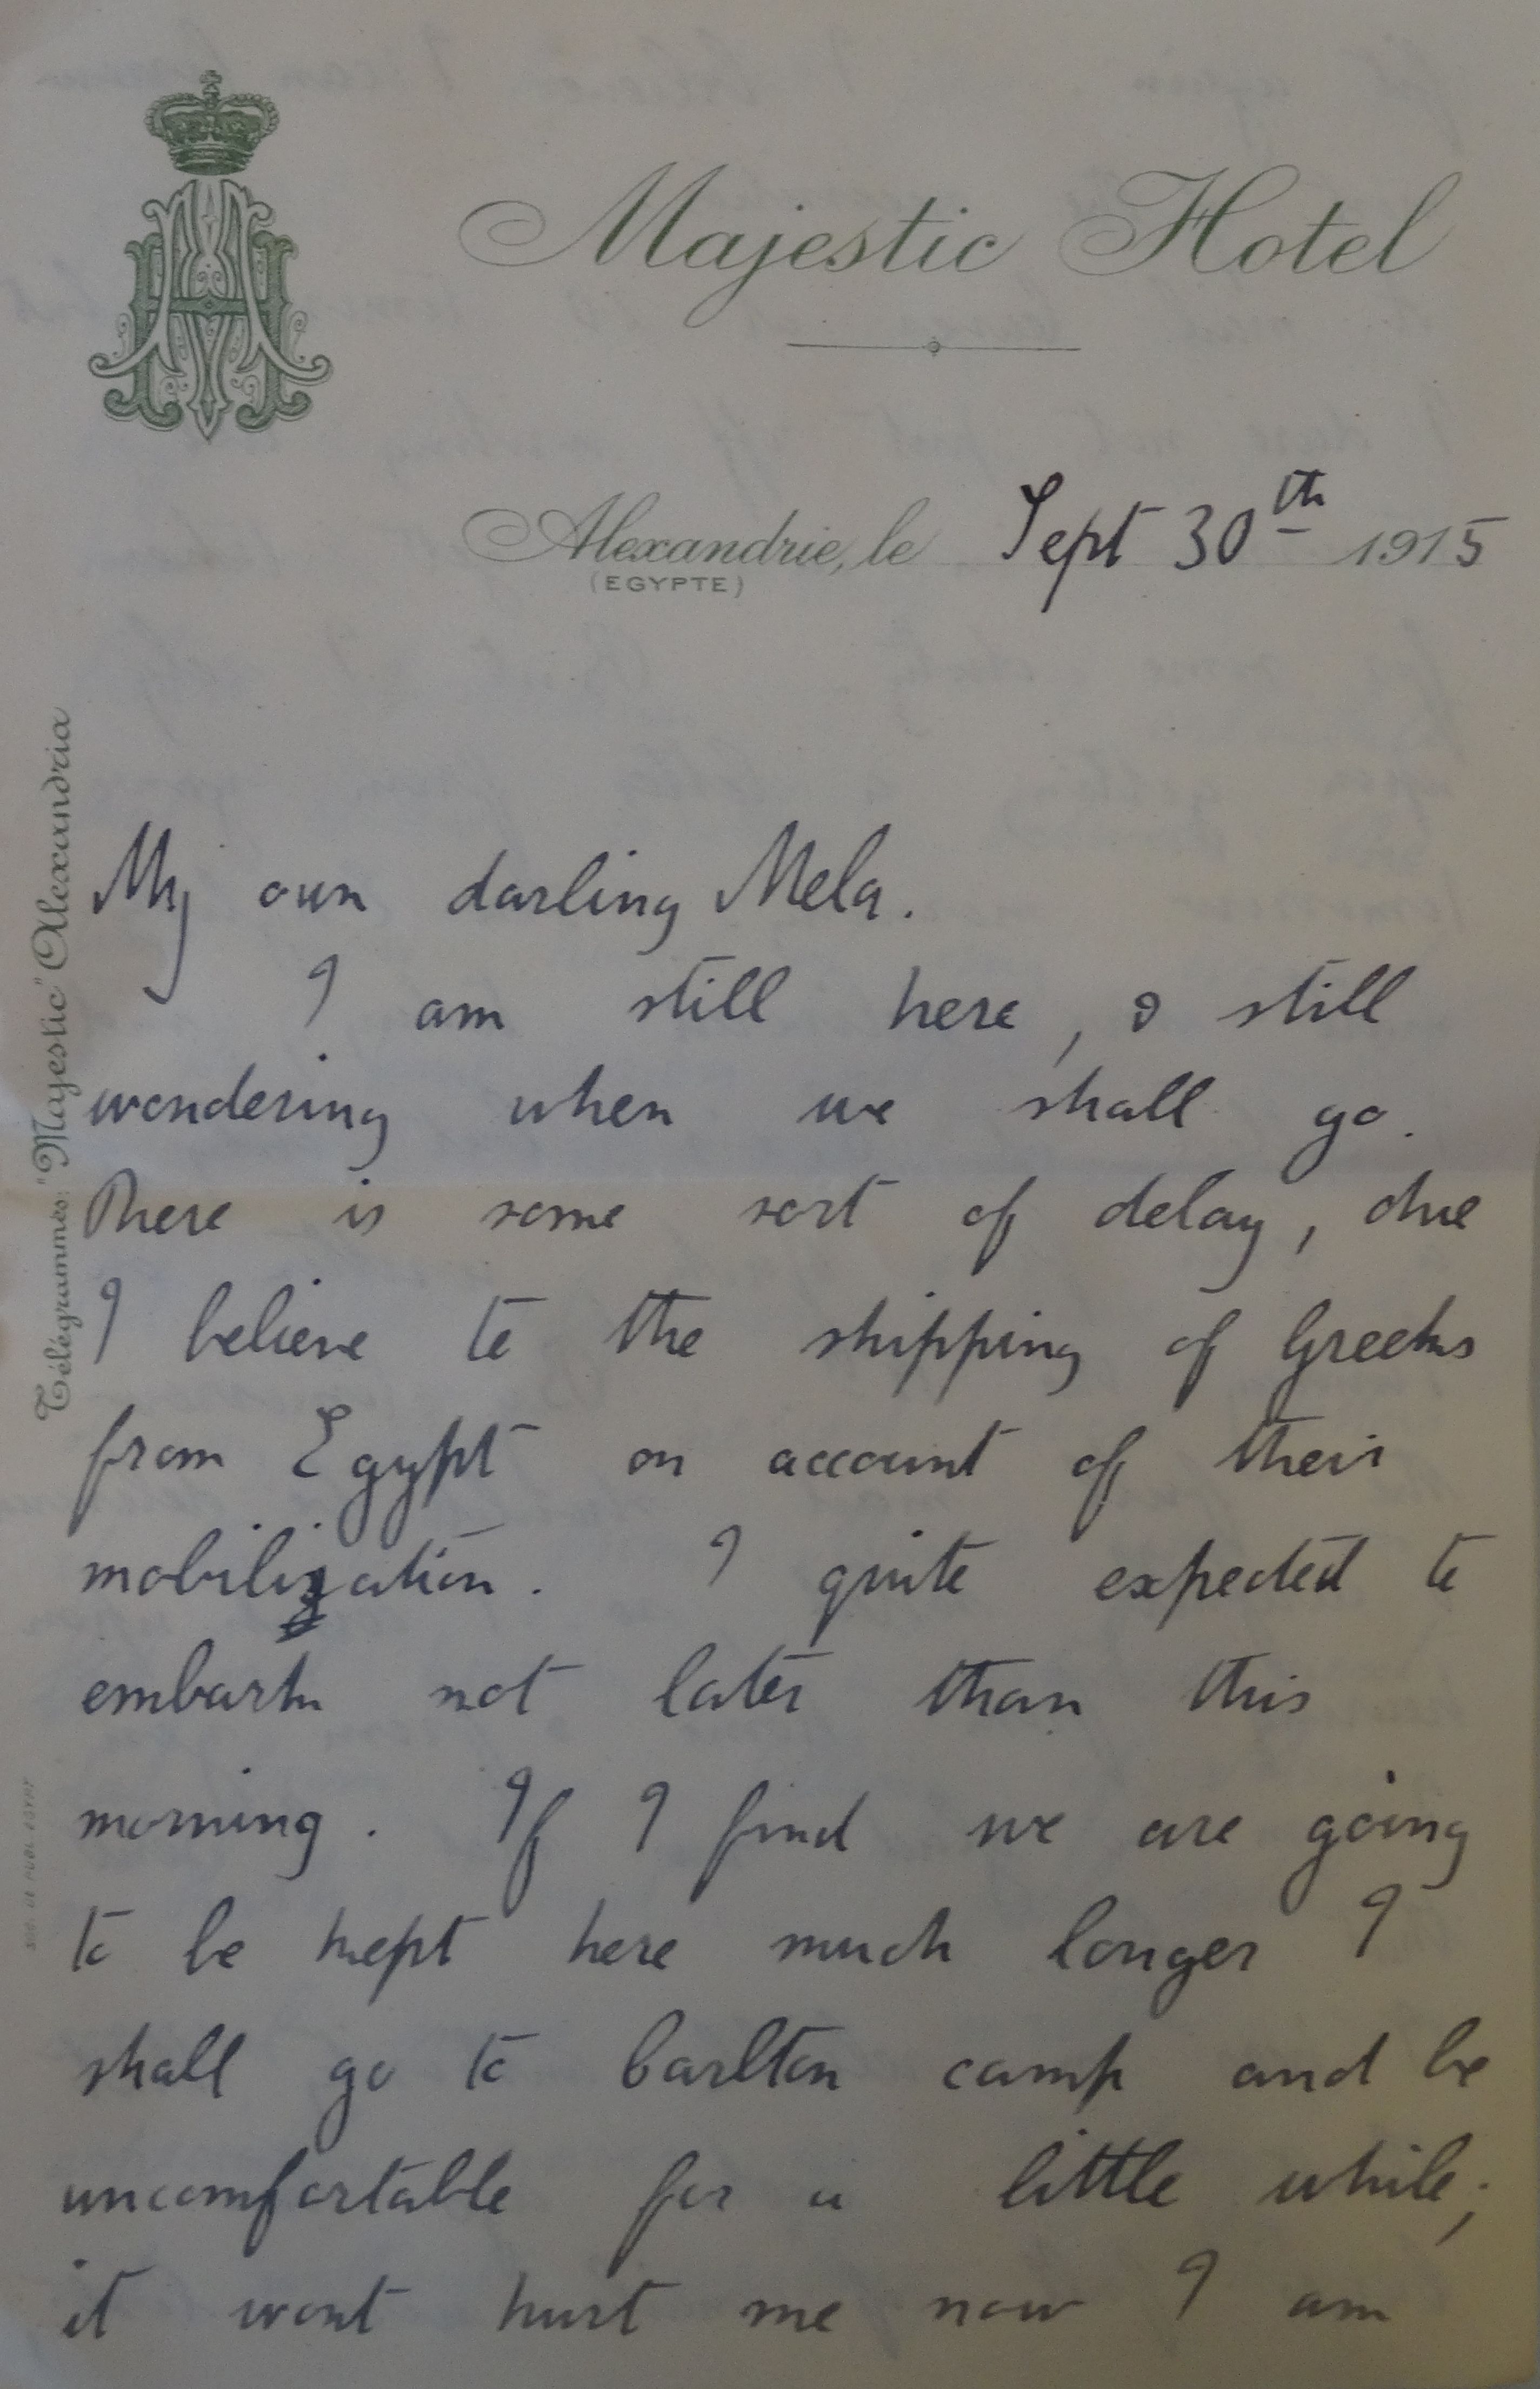 Majestic Hotel
Alexandrie, le Sept 30th 1915
(EGYPTE)
Télégrammes: "Majestic" Alexandria
My own darling Mela.
I am still here, & still
wondering when we shall go.
There is some sort of delay, due
I believe to the shipping of Greeks
from Egypt on account of their
mobilization. I quite expected to
embark not later than this
morning. If I find we are going
to be kept here much longer I
shall go to Carlton camp and be
uncomfortable for a little while;
it wont hurt me now I am